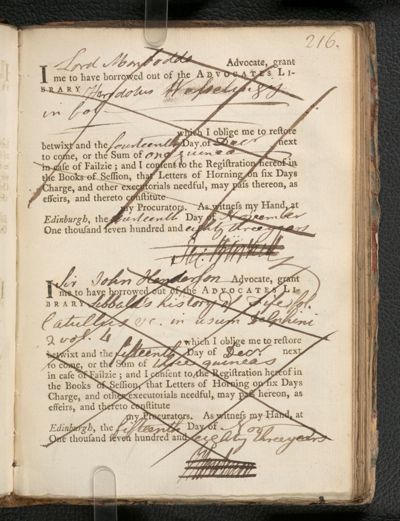 216.
I Lord Monboddo Advocate, grant
me to have borrowed out of the ADVOCATES LI-
BRARY Herodotus Wesselingij
in fol
which I oblige me to restore
betwixt and the fourteenth Day of Decr next
to come, or the Sum of one guinea
in case of Failzie; and I consent to the Registration hereof in
the Books of Session, that Letters of Horning on six Days
Charge, and other executorials needful, may pass thereon, as
effeirs, and thereto constitute
my Procurators. As witness my Hand, at
Edinburgh, the fourteenth Day of November
One thousand seven hundred and eighty three years
I Sir John Henderson Advocate, grant
me to have borrowed out of the ADVOCATES LI-
BRARY Sibbald's history of Fife fol
Catullus &c. in usum Delphini
2 vol. 4
which I oblige me to restore
betwixt and the fifteenth Day of Decr next
to come, or the Sum of three guineas
in case of Failzie; and I consent to the Registration hereof in
the Books of Session, that Letters of Horning on six Days
Charge, and other executorials needful, may pass hereon, as
effeirs, and thereto constitute
my Procurators. As witness my Hand, at
Edinburgh, the fifteenth Day of Nov
One thousand seven hundred and eighty three years